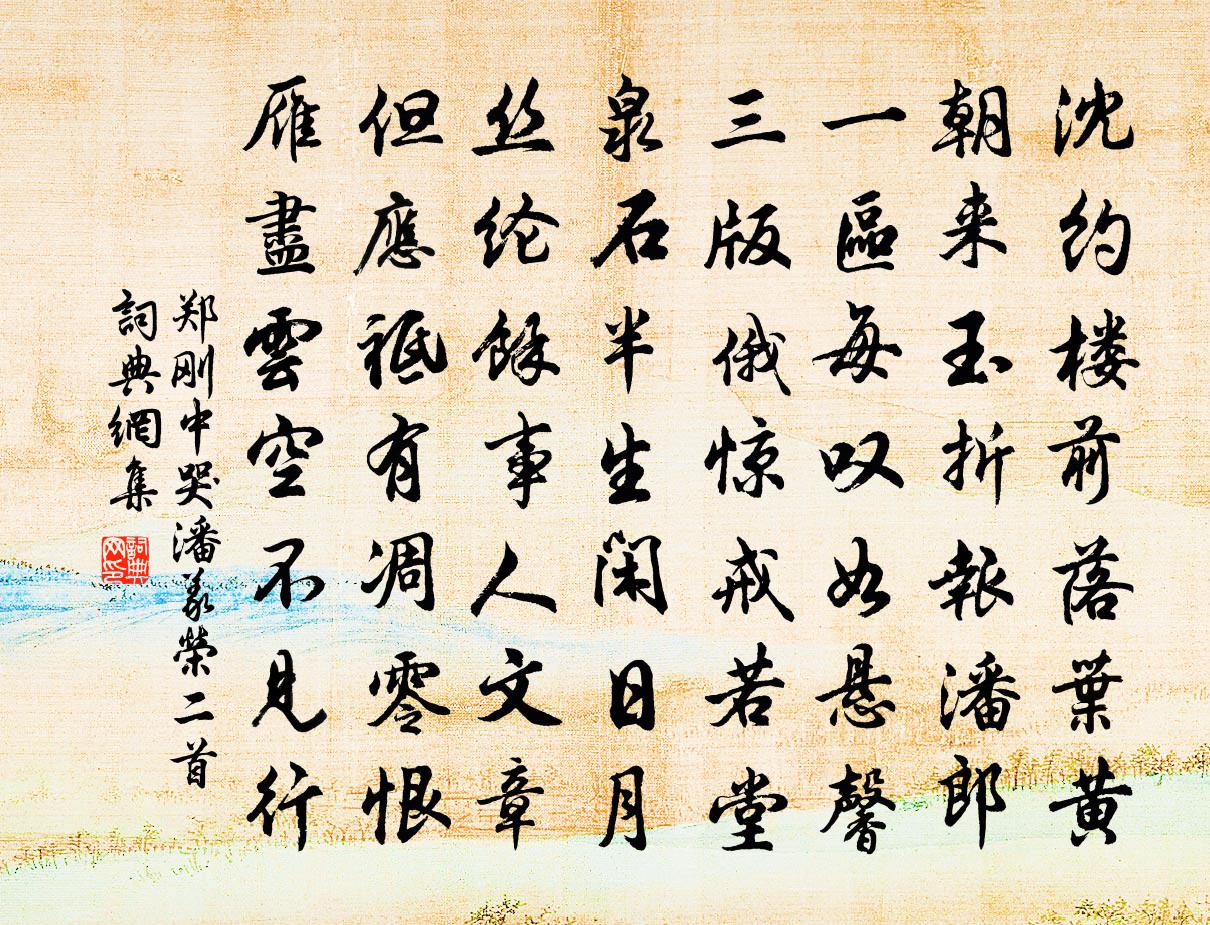 沈约楼前落葉黄
朝来玉折報潘郎
一區每叹如悬馨
三版俄惊戒若堂
泉石半生闲日月
丝纶餘事人文章
但應祗有凋零恨
雁盡雲空不見行
郑刚中哭潘义榮二首
詞典網集
詞典网印